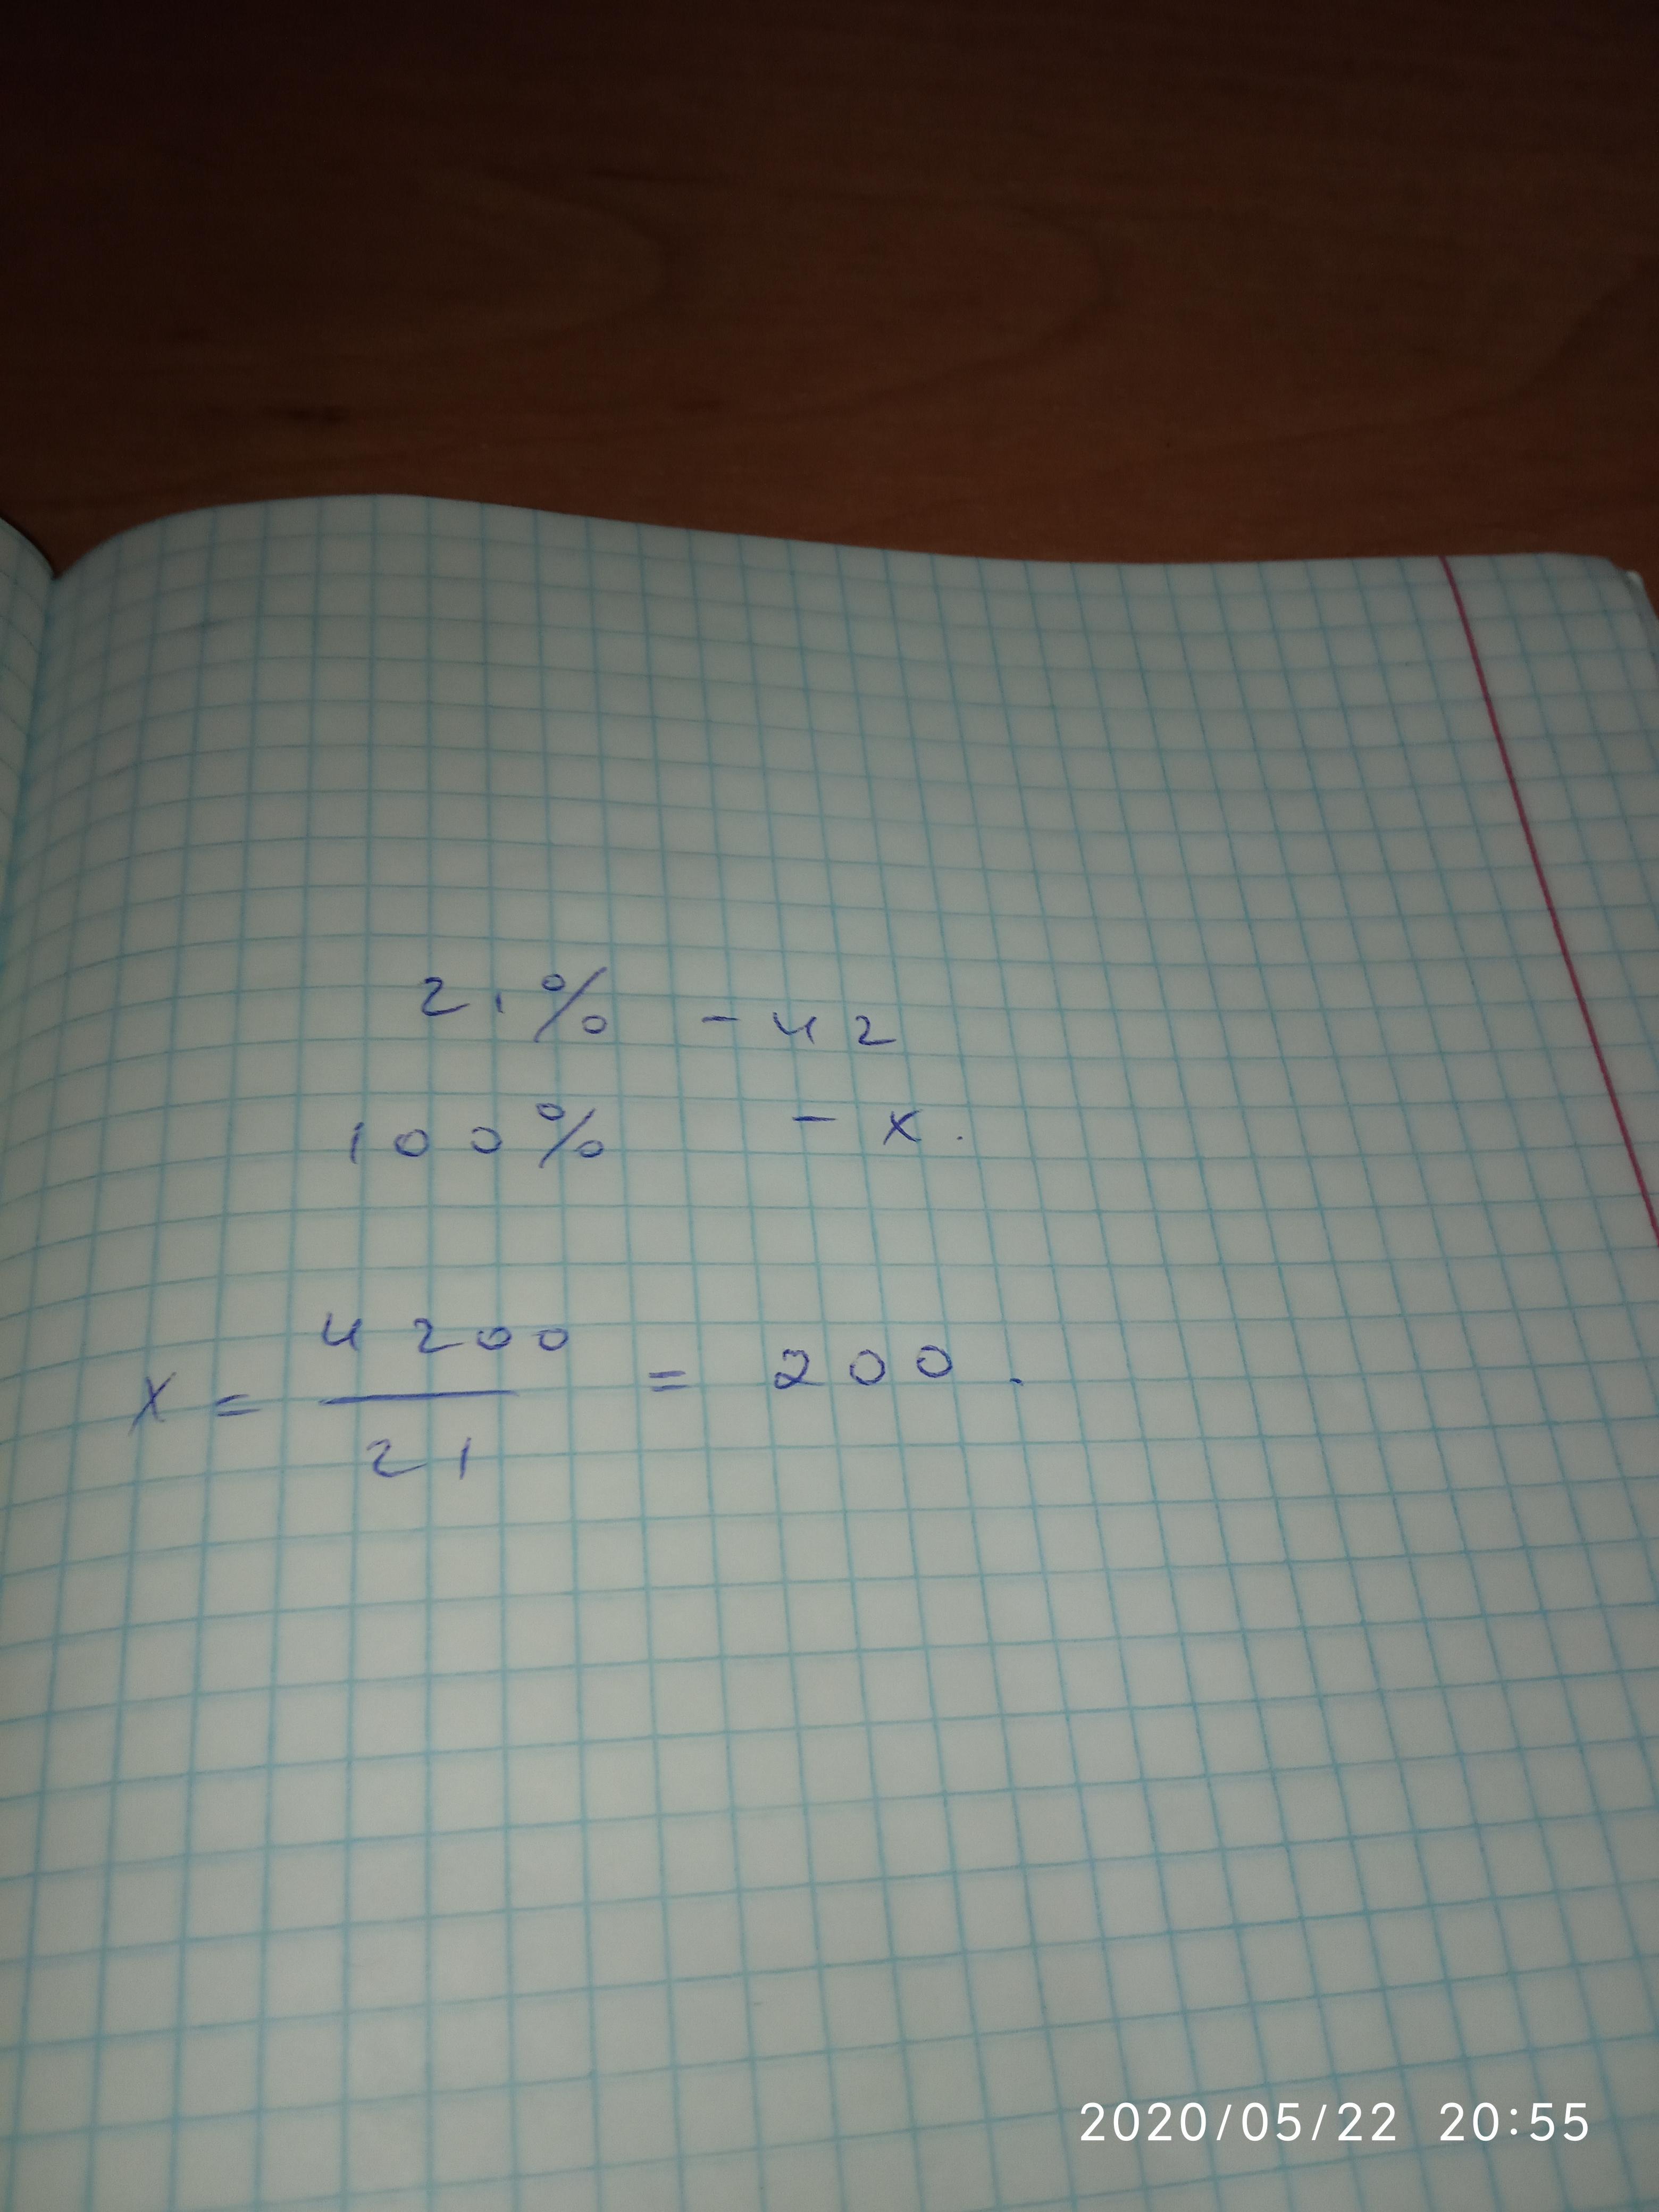 21% - 42
100% - x.
x = 4200/21 = 200.
2020/05/22 20:55